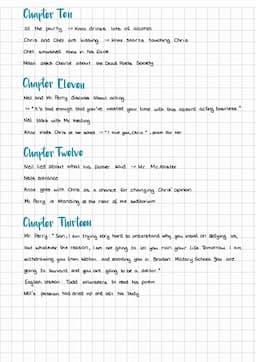 Chapter Ten
At the party → Knox drinks lots of alcohol
Chris and Chet are kissing → Knox starts touching Chris
Chet smashed Knox in his face
Nolan asks Charlie about the Dead Poets Society
Chapter Eleven
Neil and Mr. Perry discuss about acting.
→ "It's bad enough that you've wasted your time with this absurd acting business."
Neil talks with Mr. Keating
Knox meets Chris at her school → "I love you, Chris.", poem for her
Chapter Twelve
Neil lied about what his father said → Mr. McAllister
Neil's entrance
Knox gets with Chris as a chance for changing Chris' opinion
Mr. Perry is standing at the rear of the auditorium
Chapter Thirteen
Mr. Perry: "Son, I am trying very hard to understand why you insist on defying us,
but whatever the reason, I am not going to let you ruin your life. Tomorrow I am
withdrawing you from Welton and enrolling you in Braden Military School. You are
going to Harvard and you are going to be a doctor."
English lesson: Todd volunteers to read his poem
Neil's passion had dried up and left his body